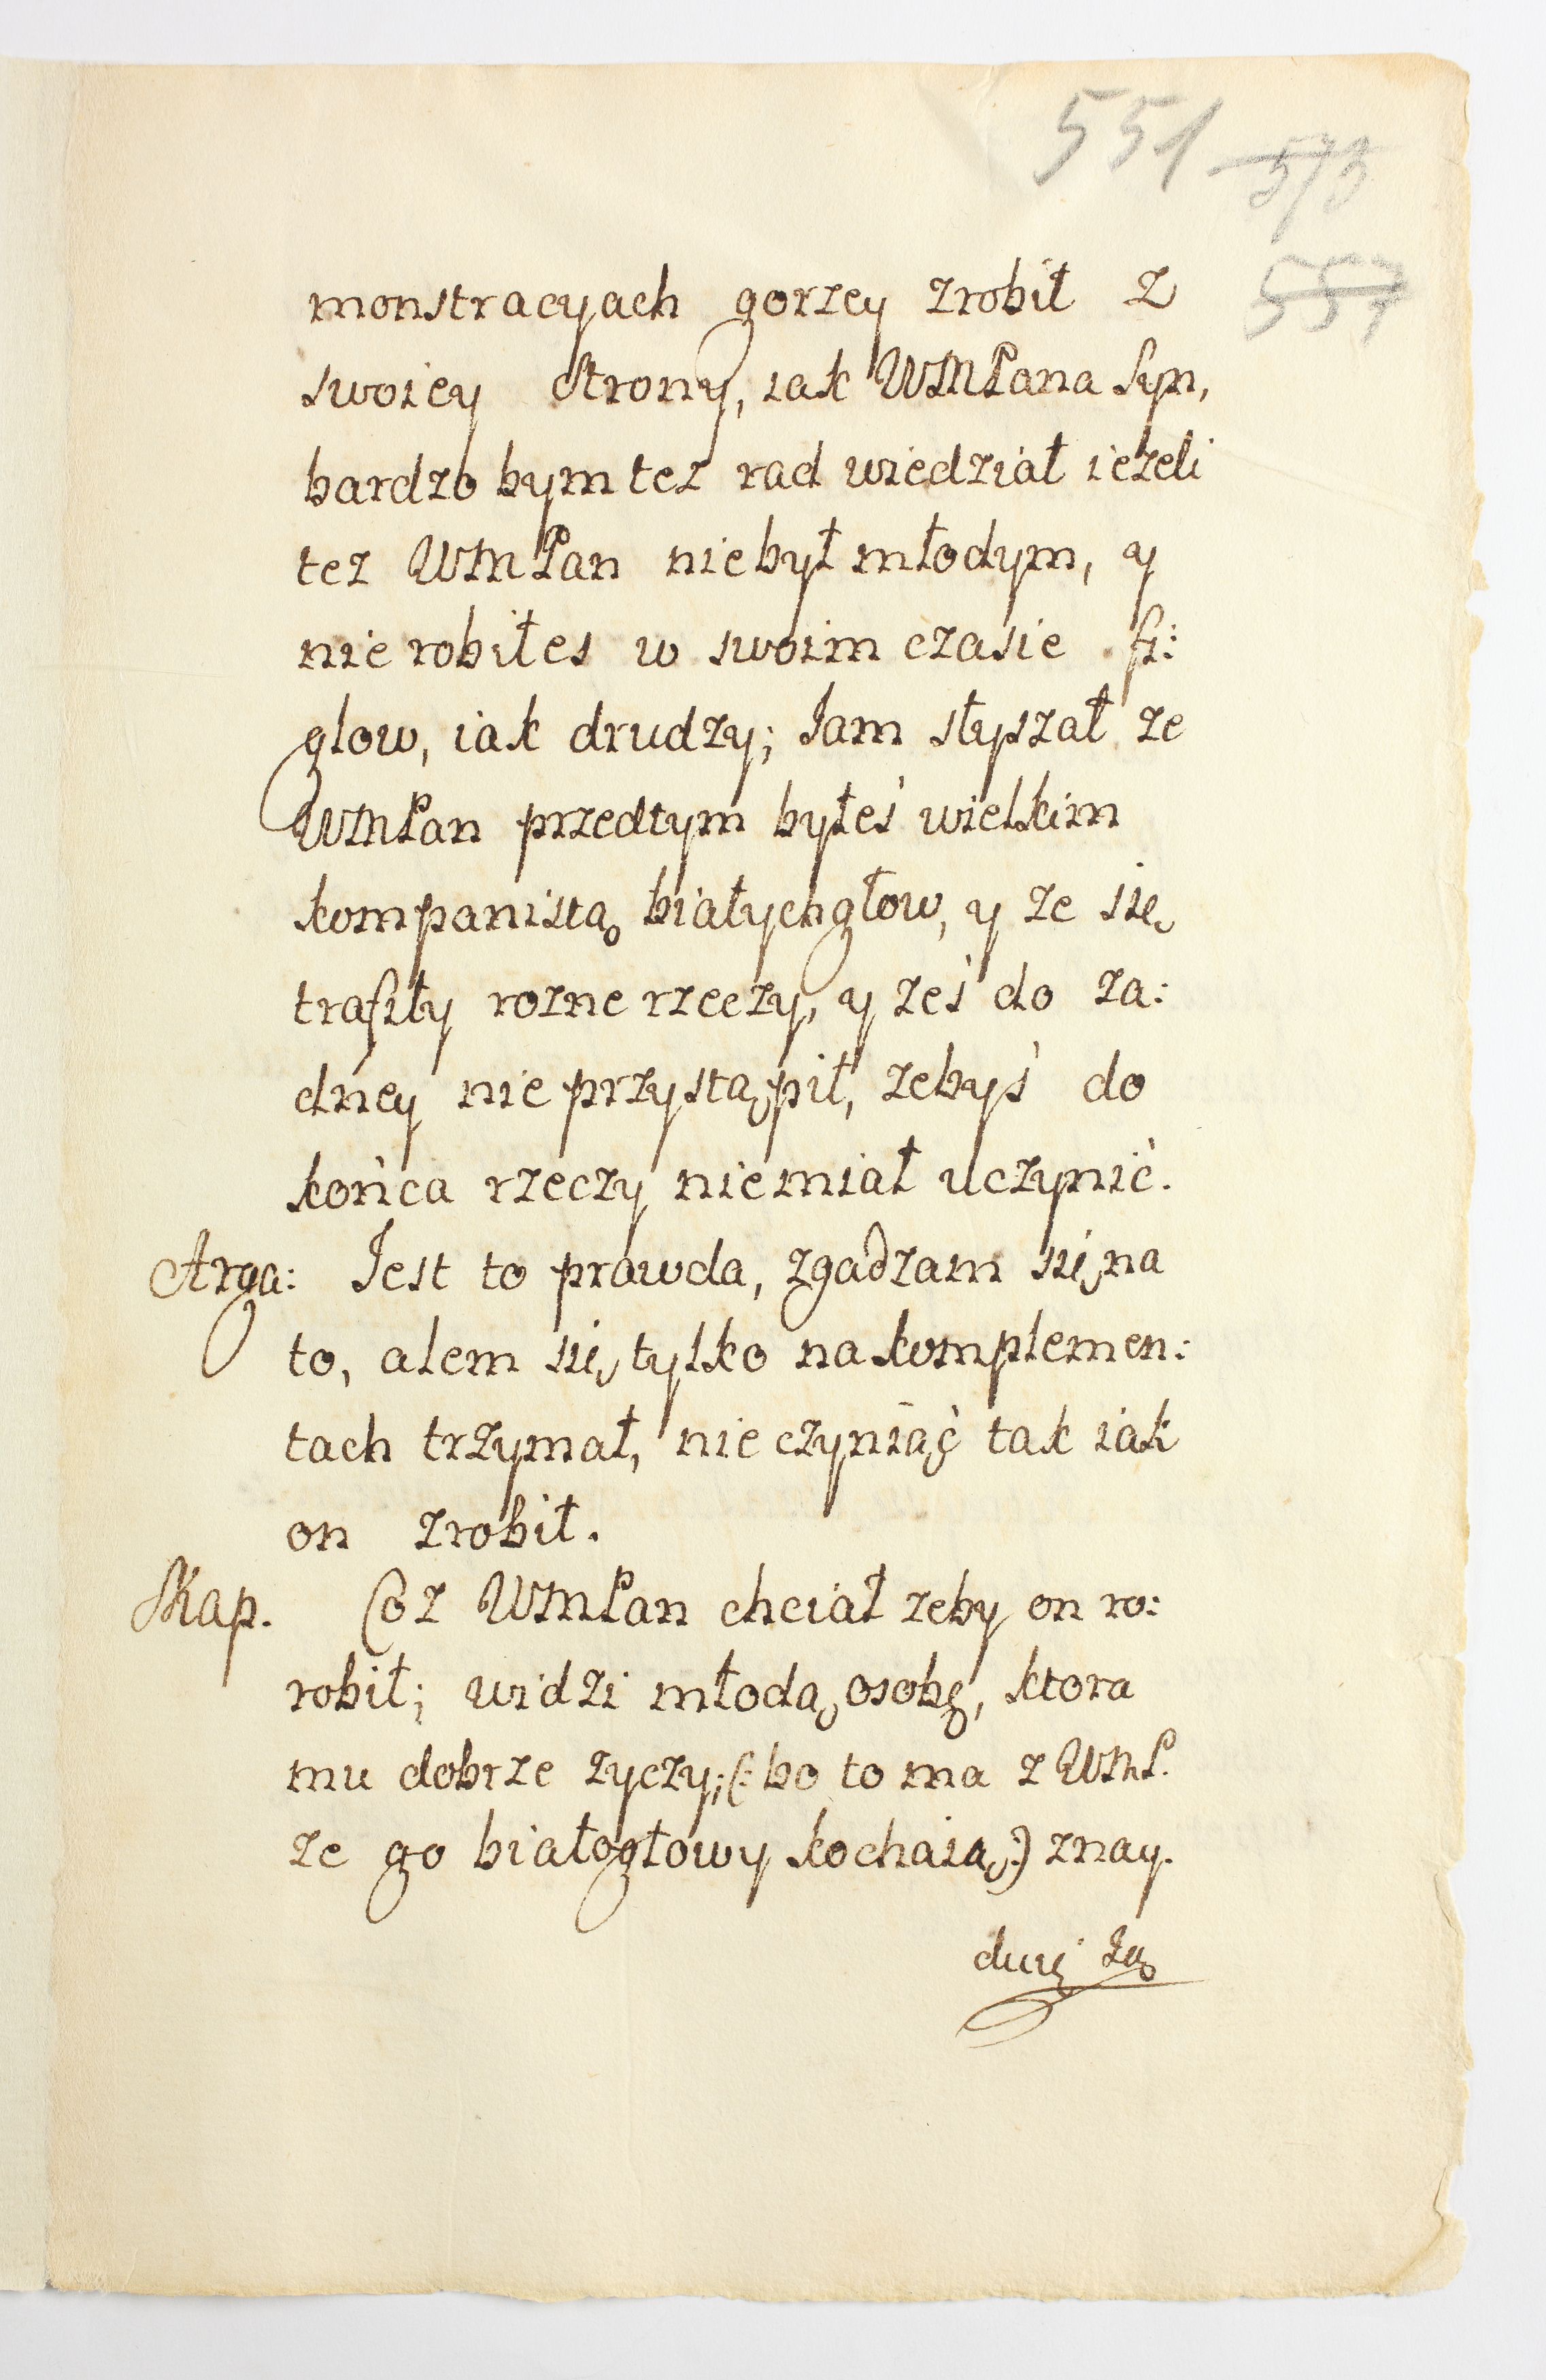 551 573
557
monstracyach gorzey zrobił z
swoiey strony, iak WMPana Syn,
bardzo bym tez rad wiedział iezeli
tez WMPan niebył młodym, y
nie robiłes w swoim czasie fi:
glow, iak drudzy; Iam słyszał ze
WMPan przedtym byłeś wielkim
kompanistą białychgłow, y ze się
trafiły rozne rzeczy, yześ do za:
dney nie przystąpił, zebyś do
końca rzeczy niemiał uczynić.
Arga: Jest to prawda, zgadzam się na
to, alem się tylko na komplemen:
tach trzymał, nie czyniąc tak iak
on zrobił.
Skap. Coz WMPan chciał zeby on ro:
robił; widzi młodą osobę, ktora
mu dobrze zyczy; (: bo to ma z WMP.
ze go białogłowy kochaią :) znay.
duię ią